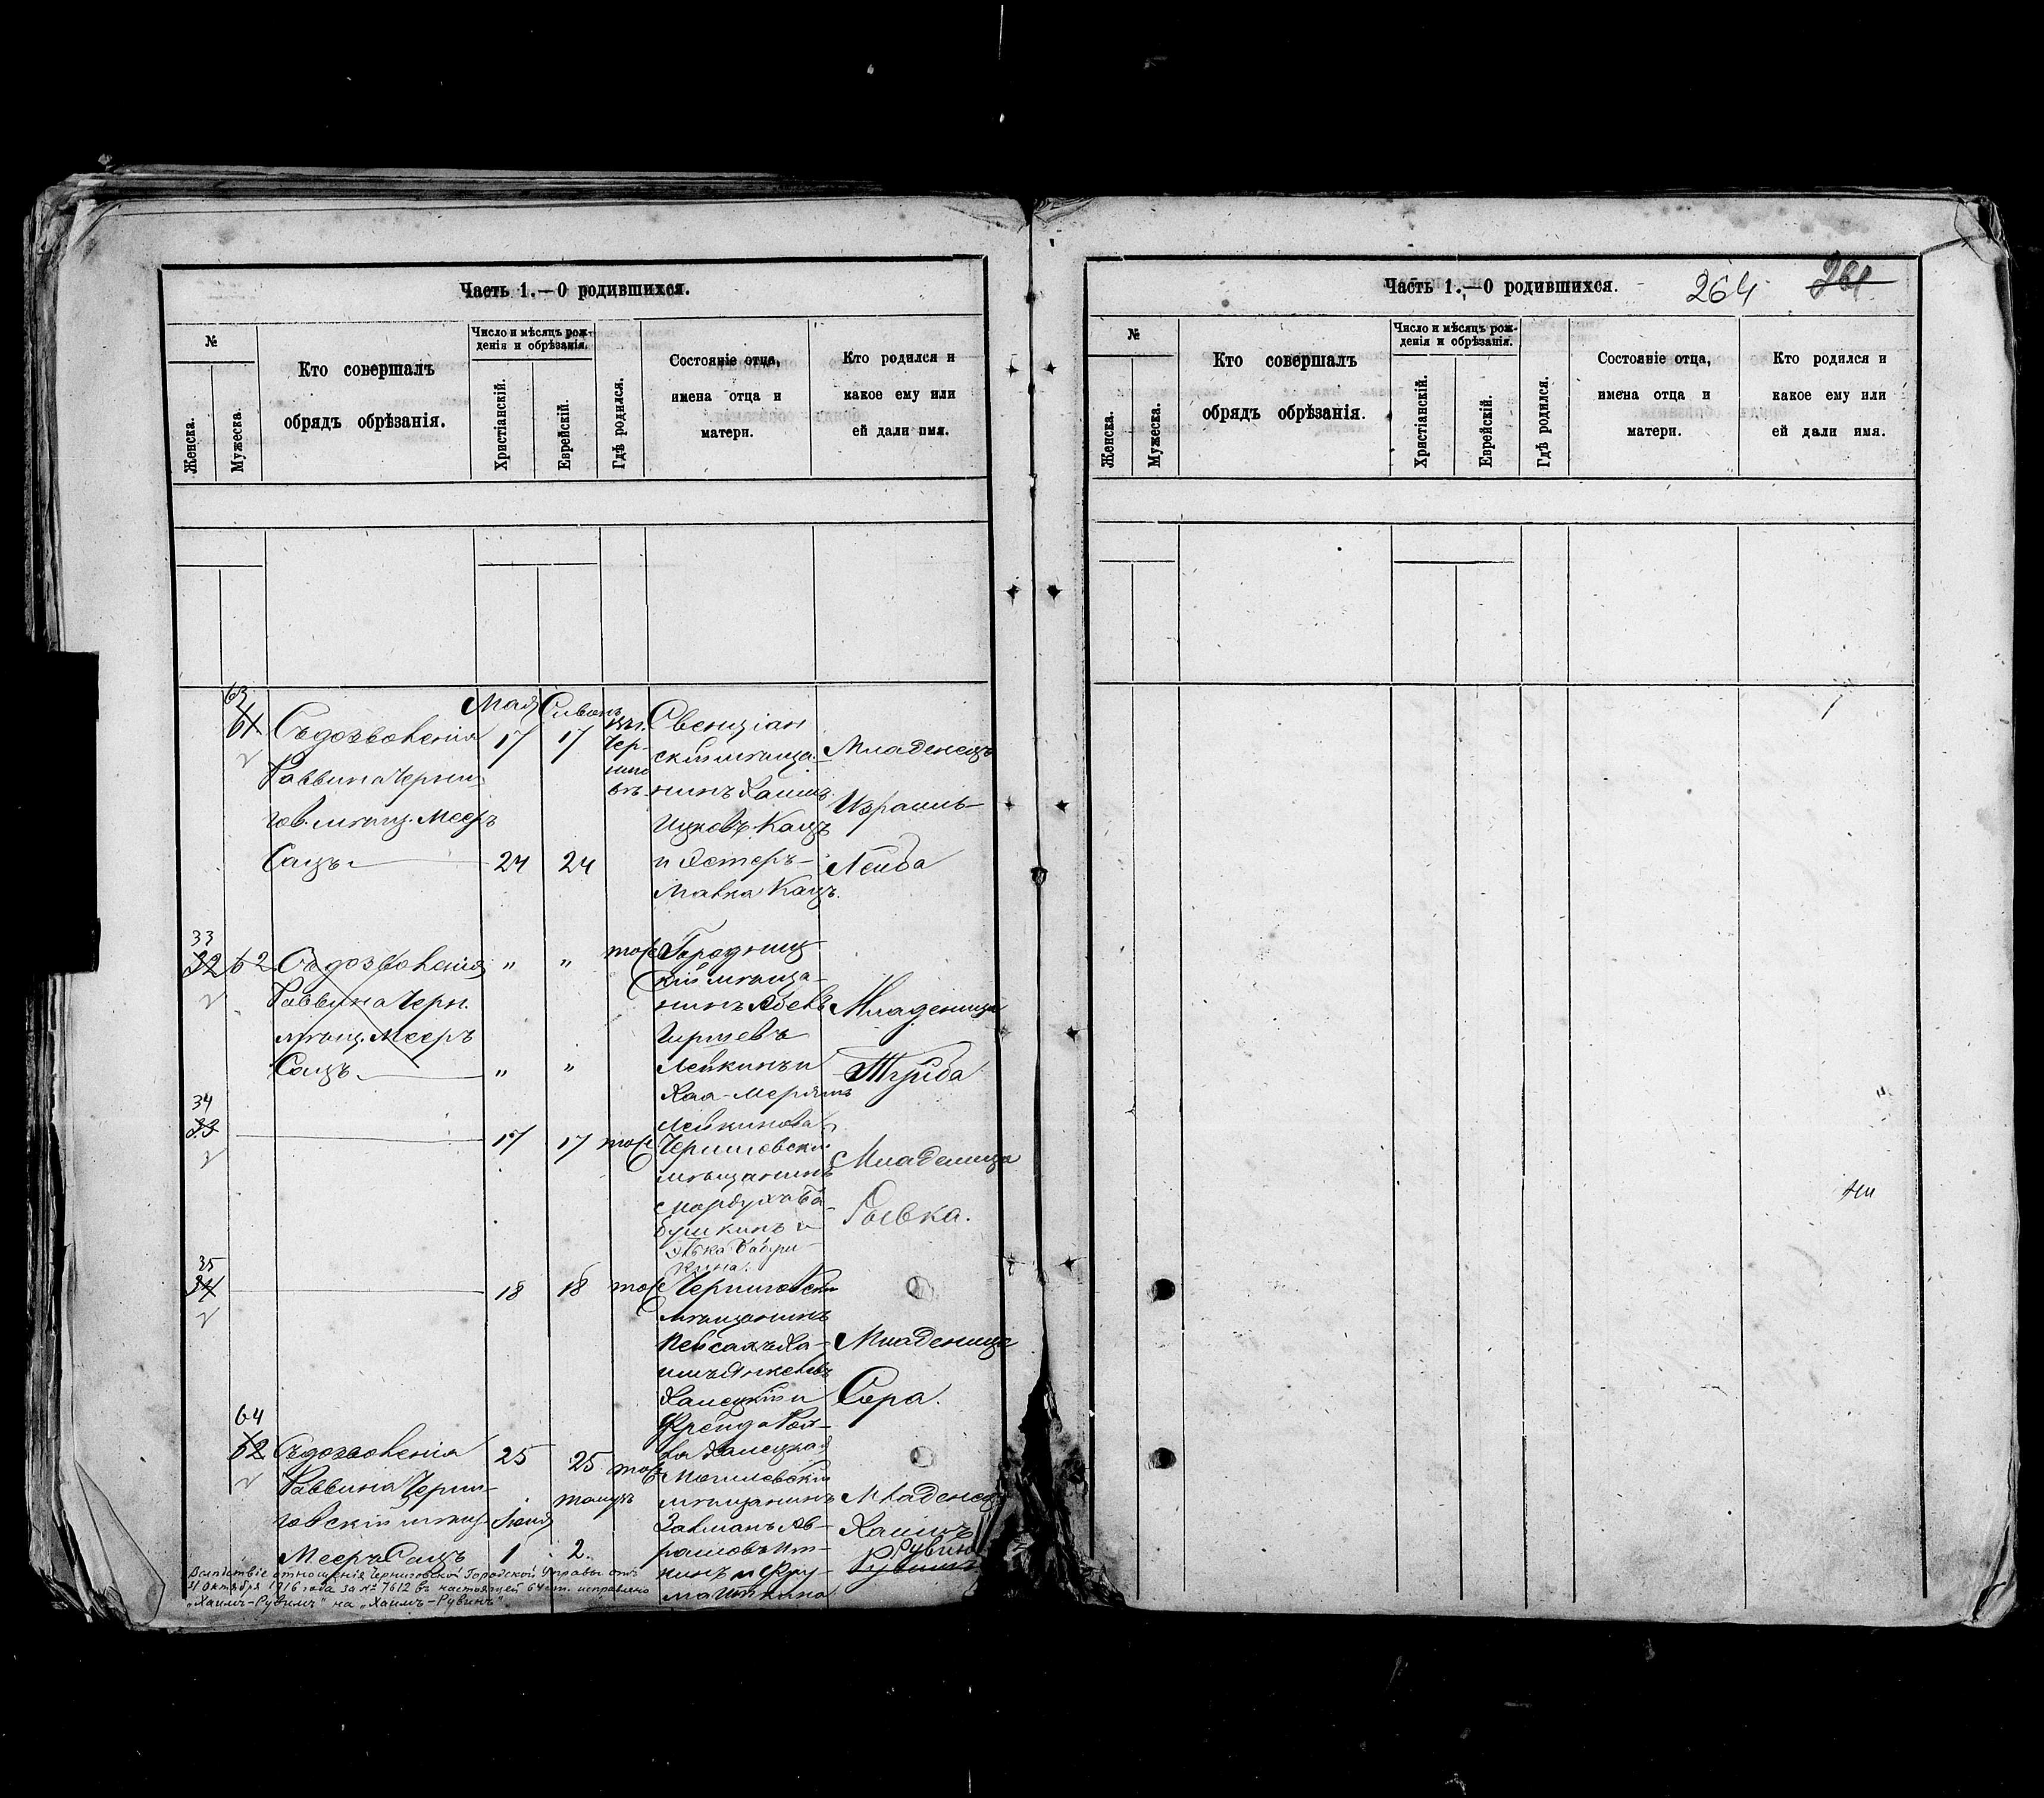 Часть 1.—О родившихся.
№
Женска.
Мужеска.
Кто совершалъ
обрядъ обрѣзанія.
Число и мѣсяцъ рож-
денія и обрѣзанія.
Христіанскій.
Еврейскій.
Гдѣ родился.
Состояніе отца,
имена отца и
матери.
Кто родился и
какое ему или
ей дали имя.
63
61
Мая
Сиванъ
Съ дозволенія
Раввина Черни-
гов. мѣщ. Мееръ
Сацъ
17
24
17
24
въ г.
Чер-
ниго
вѣ.
Свенціан
скій мѣща-
нинъ Хаимъ
Ицковъ Кацъ
и Эстеръ-
Малка Кацъ.
Младенецъ
Израиль-
Лейба
33
32
62
Съ дозволенія
Раввина Черн.
мѣщ. Мееръ
Сацъ
"
"
"
"
тоже
Городниц
кій мѣща-
нинъ
Гиршевъ
Лейкинъ и
Хая-Меріямъ
Лейкинова
Младеница
34
33
17
17
тоже
Черниговскій
мѣщанинъ
Мордухъ Ба-
бушкинъ и
Бабуш
кина.
Младеница
Ривка.
35
34
18
18
тоже
Черниговскій
мѣщанинъ
Пейсахъ Ха-
имъ Янкелевъ
Хамецкій и
Фрейда Рив-
ка Хамецкая
Младеница
Сора.
64
62
Съ дозволенія
Раввина Черни-
говскій мѣщ.
Мееръ Сацъ
25
Іюня
1
25
тамузъ
2.
тоже
Могилевскій
мѣщанинъ
Залманъ Аб-
рамовъ Ит-
кинъ и Фру-
ма Иткина
Младенецъ
Хаимъ
Рувинъ
Рувимъ
Вслѣдствіе отношенія Черниговской Городской Управы отъ
31 Октября 1916 года за № 7612 въ настоящей 64 ст. исправлено
„Хаимъ-Рувимъ" на „Хаимъ-Рувинъ".
Часть 1.—О родившихся.
264
261
№
Женска.
Мужеска.
Кто совершалъ
обрядъ обрѣзанія.
Число и мѣсяцъ рож-
денія и обрѣзанія.
Христіанскій.
Еврейскій.
Гдѣ родился.
Состояніе отца,
имена отца и
матери.
Кто родился и
какое ему или
ей дали имя.